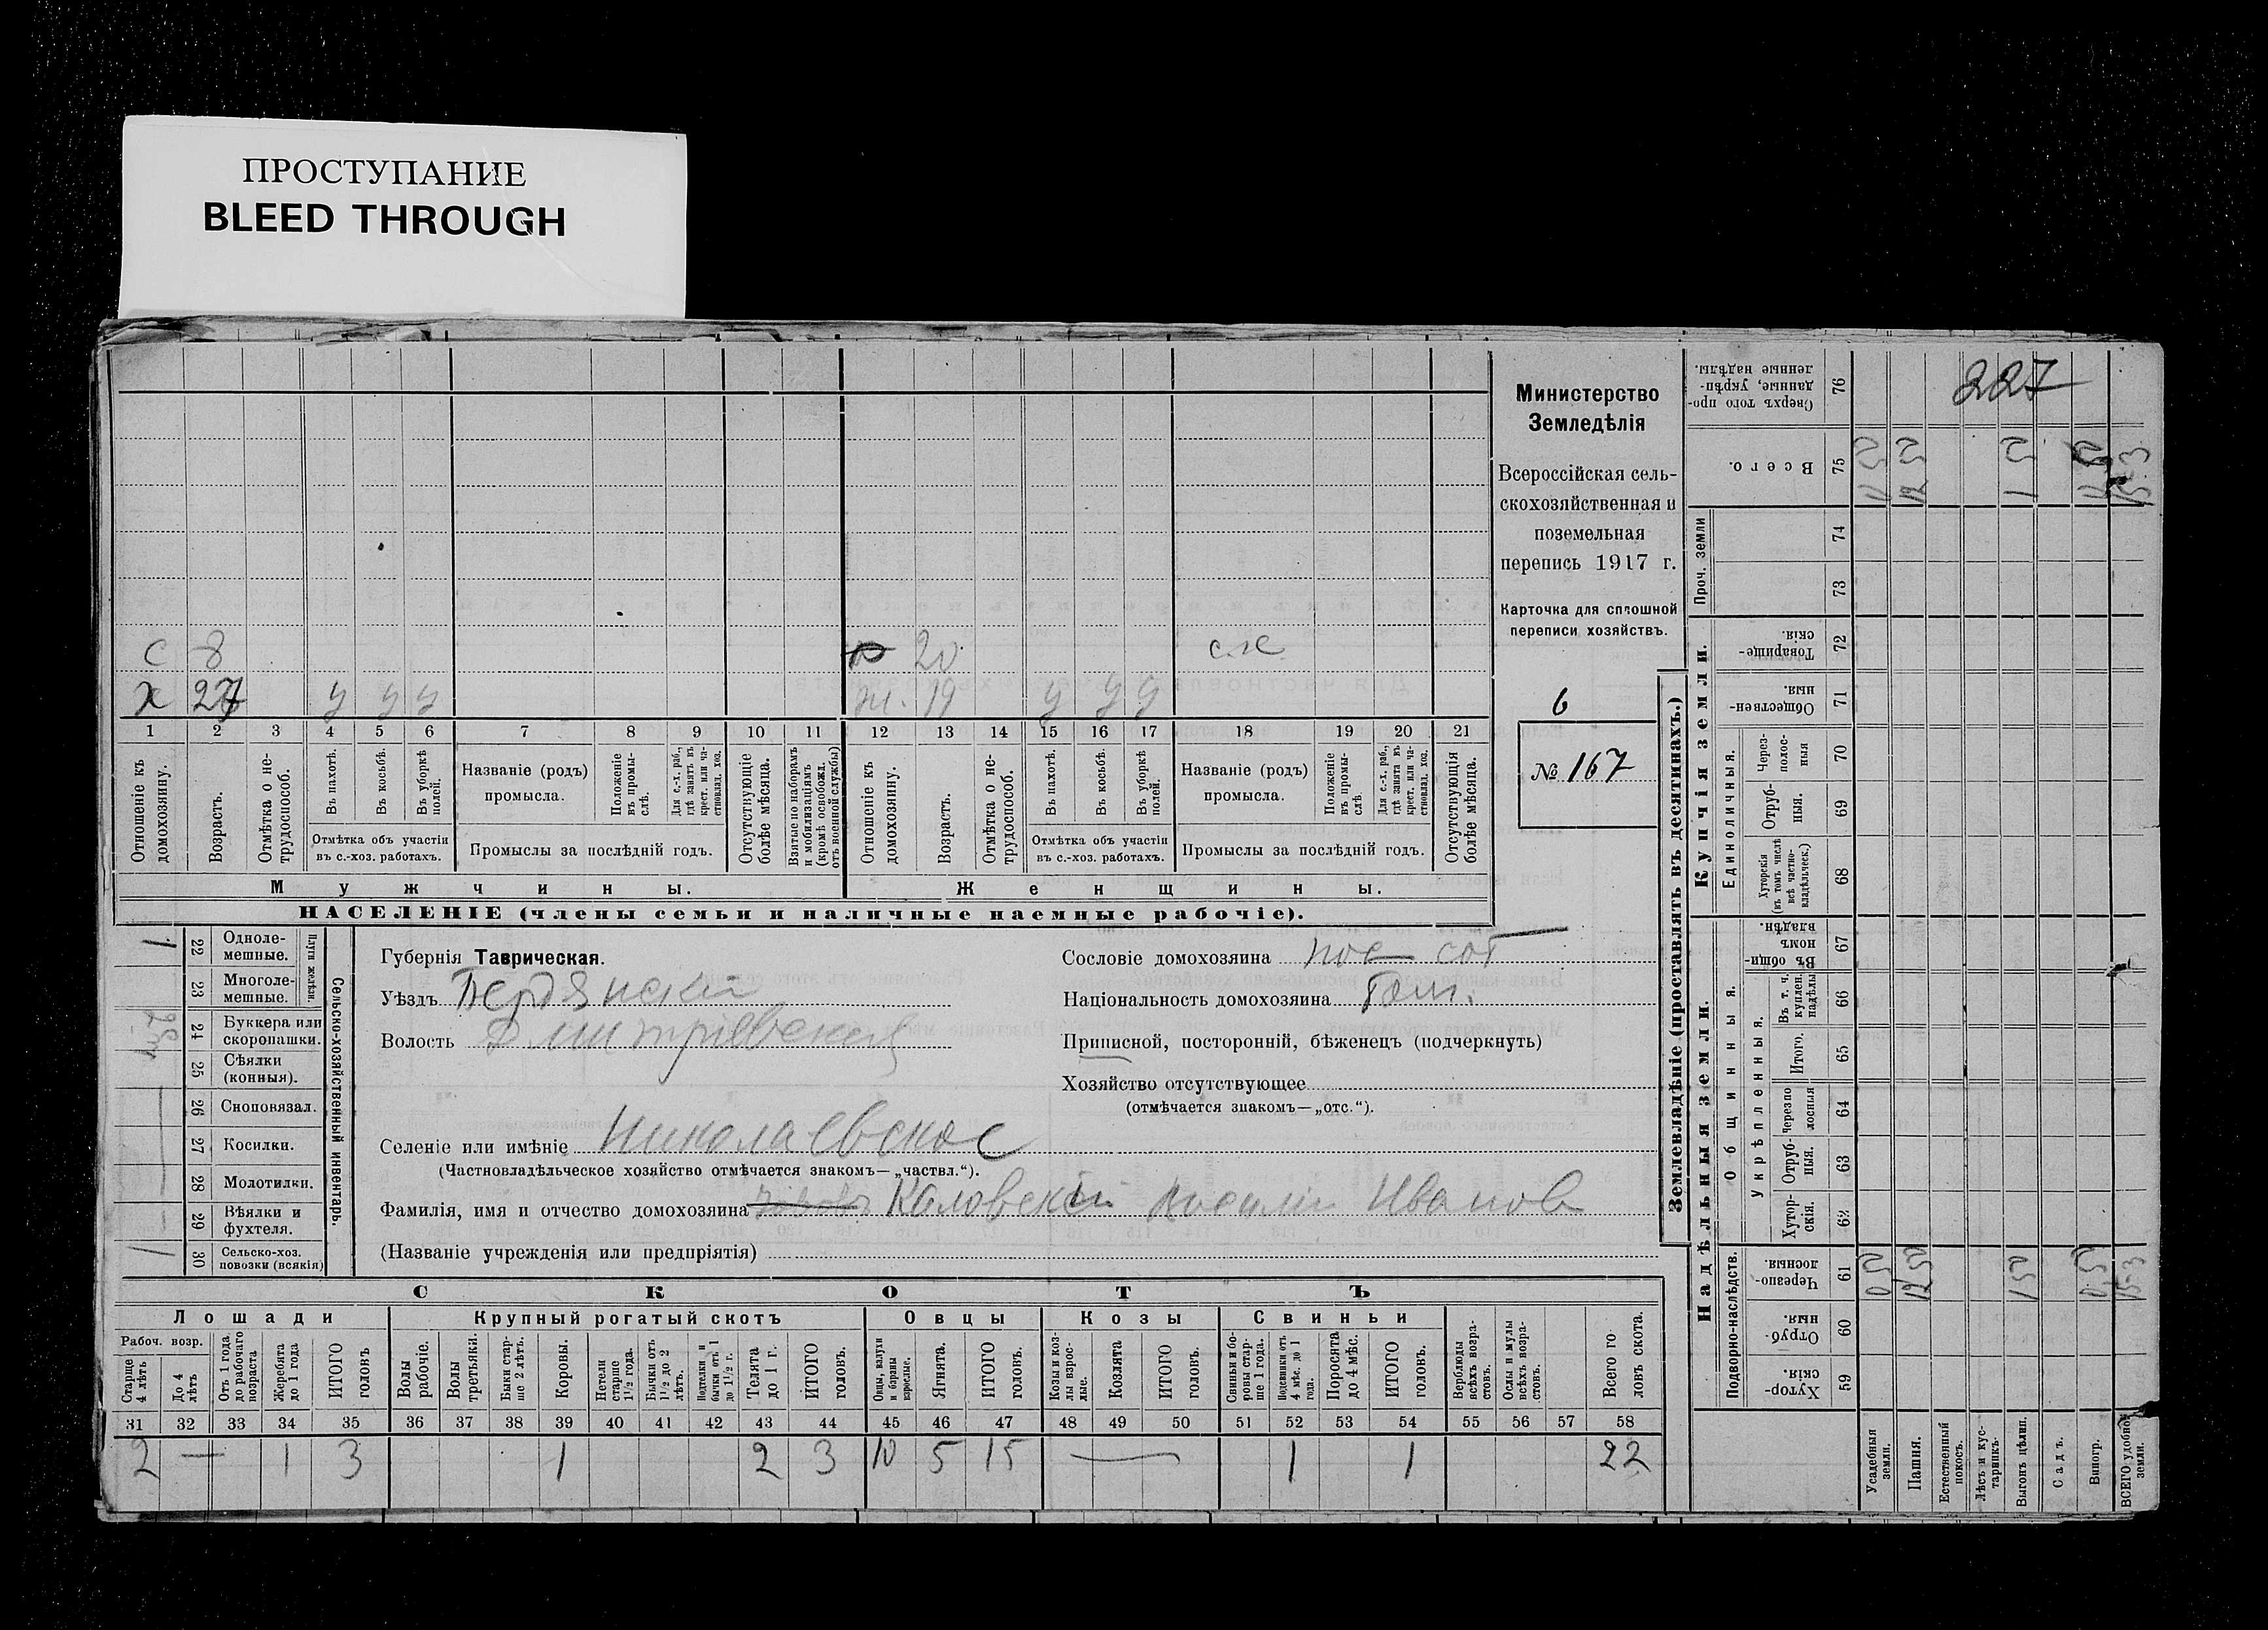 ПРОСТУПАНИЕ
BLEED THROUGH
227
Министерство
Земледѣлія
Всероссійская сель-
скохозяйственная и
поземельная
перепись 1917 г.
Карточка для сплошной
переписи хозяйствъ.
6
№ 167
с 8 20
х 27 у у у ж. 19 у у у
1 2 3 4 5 6 7 8 9 10 11 12 13 14 15 16 17 18 19 20 21
Отношеніе къ домохозяину.
Возрастъ.
Отмѣтка о не-трудоспособ.
Въ пахотѣ.
Въ косьбѣ.
Въ уборкѣ полей.
Отмѣтка объ участіи
въ с.-хоз. работахъ.
Названіе (родъ)
промысла.
Положеніе въ промы-слѣ.
Для с.-х. раб., гдѣ занятъ въ крест. или ча-ствовлад. хоз.
Промыслы за послѣдній годъ.
Отсутствующіе болѣе мѣсяца.
Взятые по наборамъ и мобилизаціямъ (кромѣ освобожд. отъ военной службы)
Отношеніе къ домохозяину.
Возрастъ.
Отмѣтка о не-трудоспособ.
Въ пахотѣ.
Въ косьбѣ.
Въ уборкѣ полей.
Отмѣтка объ участіи
въ с.-хоз. работахъ.
Названіе (родъ)
промысла.
Положеніе въ промы-слѣ.
Для с.-х. раб., гдѣ занята въ крест. или ча-ствовлад. хоз.
Промыслы за послѣдній годъ.
Отсутствующія болѣе мѣсяца.
Мужчины. Женщины.
НАСЕЛЕНІЕ (члены семьи и наличные наемные рабочіе).
Сельско-хозяйственный инвентарь.
Плуги желѣзн.
22 Одноле-мешные. 1
23 Многоле-мешные.
24 Буккера или скоропашки.
25 Сѣялки (конныя).
26 Сноповязал.
27 Косилки.
28 Молотилки.
29 Вѣялки и фухтеля.
30 Сельско-хоз. повозки (всякія) 1
Губернія Таврическая.
Уѣздъ Бердянскій
Волость Дмитріевская
Селеніе или имѣніе Николаевское
(Частновладѣльческое хозяйство отмѣчается знакомъ—„частвл.“).
Фамилія, имя и отчество домохозяина Каловскій Иванов
(Названіе учрежденія или предпріятія)
Сословіе домохозяина пос соб
Національность домохозяина
Приписной, посторонній, бѣженецъ (подчеркнуть)
Хозяйство отсутствующее
(отмѣчается знакомъ—„отс.“).
СКОТЪ
Лошади Крупный рогатый скотъ Овцы Козы Свиньи
Рабоч. возр.
Старше 4 лѣтъ
До 4 лѣтъ
Отъ 1 года до рабочаго возраста
Жеребята до 1 года
ИТОГО головъ
Волы рабочіе.
Волы третьяки.
Быки стар-ше 2 лѣтъ.
Коровы.
Нетели старше 1½ года.
Бычки отъ 1½ до 2 лѣтъ.
Подтелки и бычки отъ 1 до 1½ г.
Телята до 1 г.
ИТОГО головъ.
Овцы, валухи и бараны взрослые.
Ягнята.
ИТОГО головъ.
Козы и коз-лы взрос-лые.
Козлята
ИТОГО головъ.
Свиньи и бо-ровы стар-ше 1 года.
Подсвинки отъ 4 мѣс. до 1 года.
Поросята до 4 мѣс.
ИТОГО головъ.
Верблюды всѣхъ возра-стовъ.
Ослы и мулы всѣхъ возра-стовъ.
Всего го-ловъ скота.
31 32 33 34 35 36 37 38 39 40 41 42 43 44 45 46 47 48 49 50 51 52 53 54 55 56 57 58
2 — 1 3 1 2 3 10 5 15 — 1 1 22
Землевладѣніе (проставлять въ десятинахъ.)
Надѣльныя земли. Купчія земли.
Подворно-наслѣдств.
Общинныя.
Укрѣпленныя.
Единоличныя.
Проч. земли
Хутор-скія. 59
Отруб-ныя. 60
Черезпо-лосныя. 61
Хутор-скія. 62
Отруб-ныя. 63
Черезпо-лосныя 64
Итого. 65
Въ т. ч. куплен. надѣлы 66
Въ общин-номъ владѣн. 67
Хуторскія (въ томъ числѣ всѣ частно-владѣльческ.) 68
Отруб-ныя. 69
Через-полос-ныя 70
Обществен-ныя. 71
Товарище-скія. 72
73
74
Всего. 75
Сверхъ того про-данные, укрѣп-ленные надѣлы. 76
Усадебныя земли.
Пашня. 12 50 12 50
Естественный покосъ.
Лѣсъ и кус-тарникъ.
Выгонъ цѣлин. 1 50 1 50
Садъ.
Виногр.
ВСЕГО удобной земли.